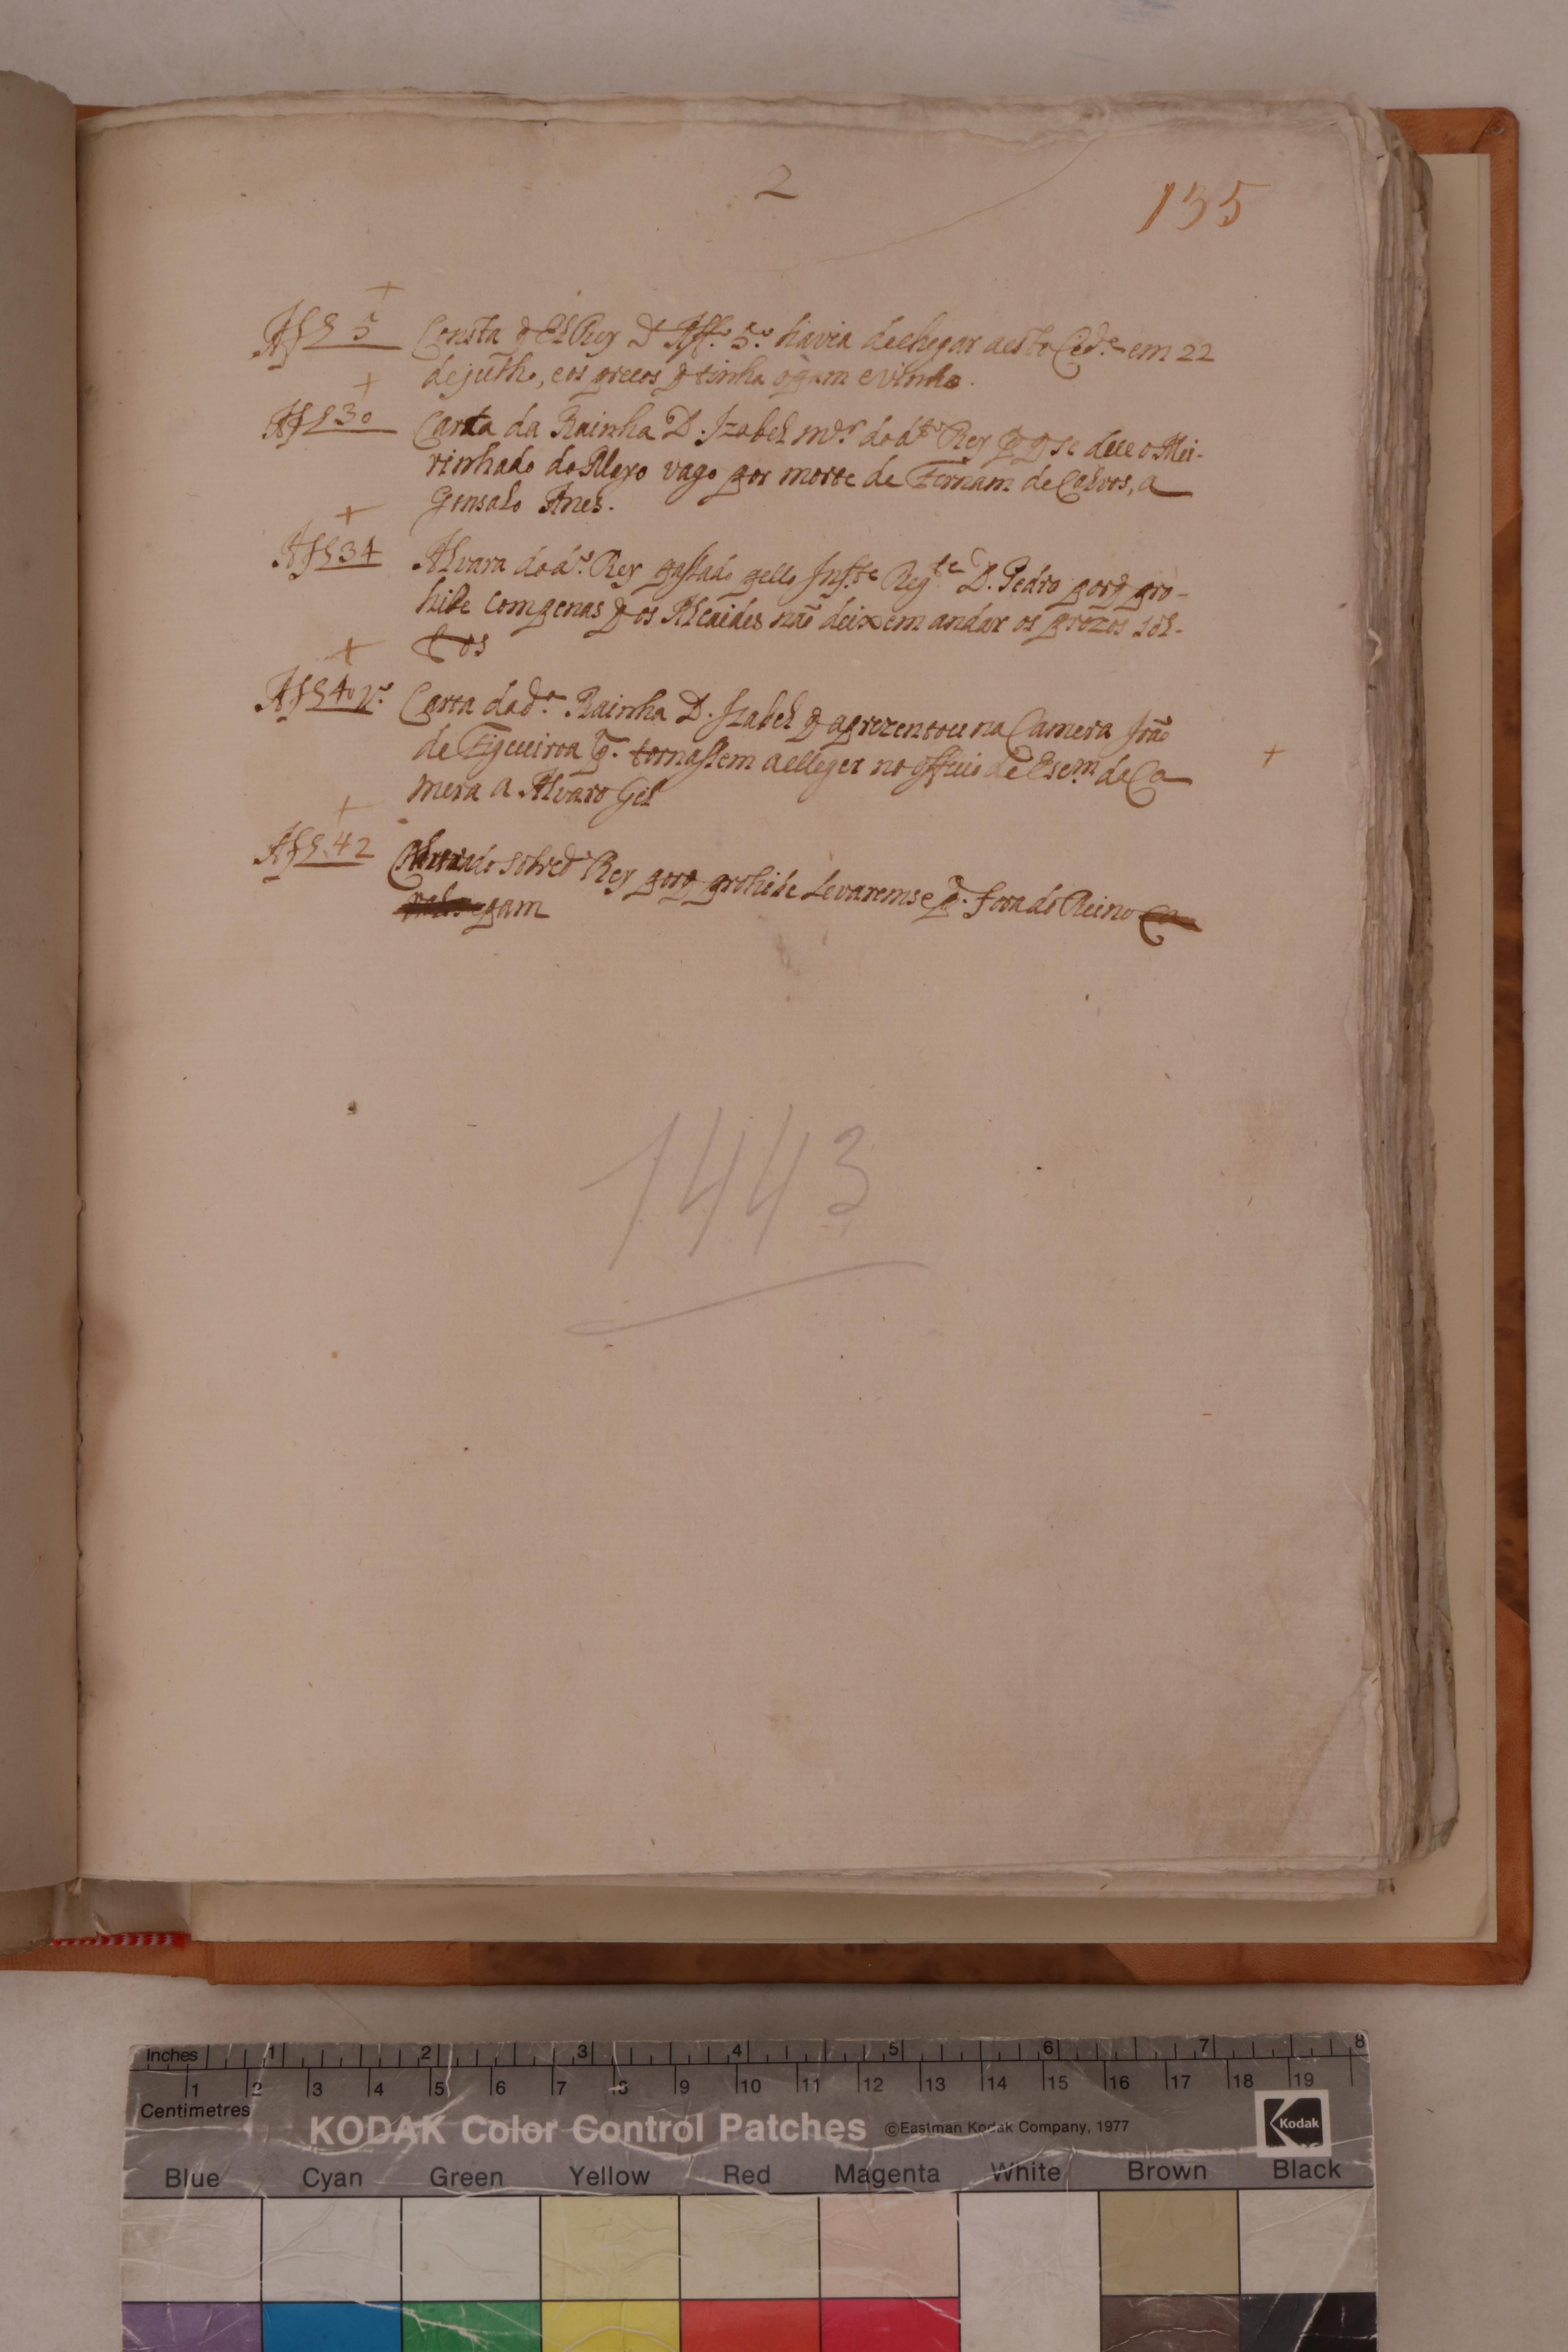 2
135
+
A f § 5 Consta q̃ El Rey D. Aff.º 5.º havia dechegar aesta Cid.e em 22
dejulho, eos precos q̃ tinha opam evinho.
+
A f § 30 Carta da Rainha D. Izabel m.er dod.to Rey pª q̃ se dece o Mei-
rinhado do Alexo vago por morte de Fernam deCalvos, a
Gonsalo Anes.
+
A f § 34 Alvara dod.º Rey passado pello Inf.te Reg.te D. Pedro porq̃ pro-
hibe compenas q̃ os Alcaides não deixem andar os prezos sol-
tos
+
A f § 40 vº Carta dad.ª Rainha D. Izabel q̃ aprezentou na Camera João
de Figueiroa pª. tornassem aelleger no officio de Escm. daCa
mera a Alvaro Gil
+
+
A f § 42 do sobred.º Rey porq̃ prohibe Levaremse pª. fora do Reino
pam
1443
Inches 1 2 3 4 5 6 7 8
1 2 3 4 5 6 7 8 9 10 11 12 13 14 15 16 17 18 19
Centimetres
KODAK Color Control Patches ©Eastman Kodak Company, 1977
Kodak
Blue Cyan Green Yellow Red Magenta White Brown Black